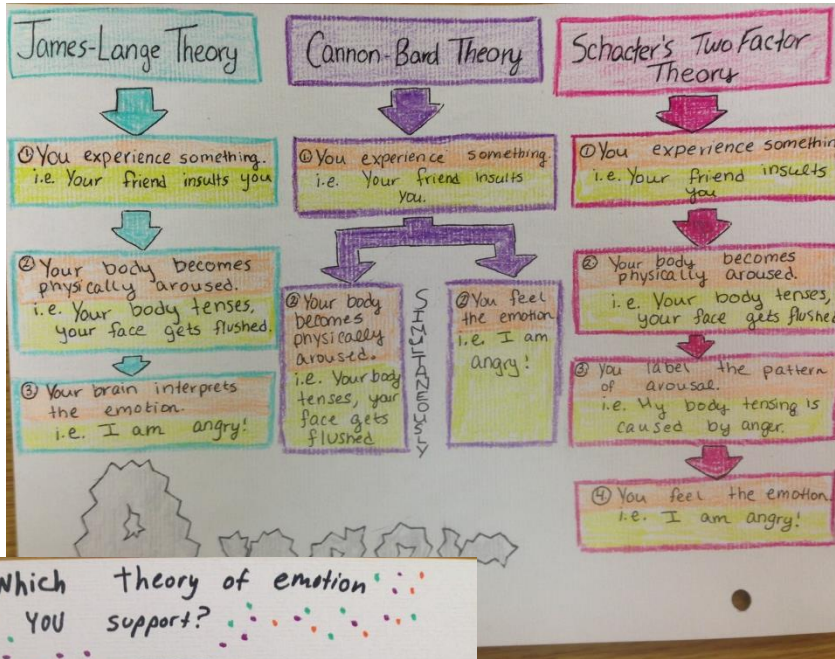 James-Lange Theory
① You experience something.
i.e. Your friend insults you
② Your body becomes
physically aroused.
i.e. Your body tenses,
your face gets flushed.
③ Your brain interprets
the emotion.
i.e. I am angry!
Cannon-Bard Theory
① You experience something.
i.e. Your friend insults
you.
② Your body
becomes
physically
aroused.
i.e. Your body
tenses, your
face gets
flushed
SIMULTANEOUSLY
② You feel
the emotion.
i.e. I am
angry!
Schacter's Two Factor
Theory
① You experience somethin
i.e. Your friend insults
you
② Your body becomes
physically aroused.
i.e. Your body tenses,
your face gets flushed
③ You label the pattern
of arousal.
i.e. My body tensing is
caused by anger.
④ You feel the emotion.
i.e. I am angry!
Which theory of emotion
YOU support?